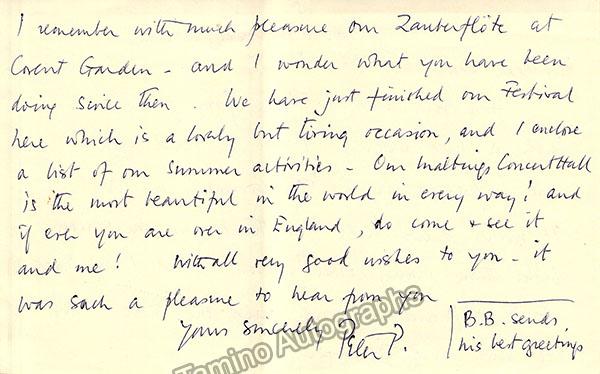 I remember with much pleasure our Zauberflöte at
Covent Garden - and I wonder what you have been
doing since then. We have just finished our Festival
here which is a lovely but tiring occasion, and I enclose
a list of our Summer activities - Our Maltings Concert Hall
is the most beautiful in the world in every way! and
if ever you are over in England, do come & see it
and me! With all very good wishes to you - it
was such a pleasure to hear from you
Yours sincerely Peter P.
B.B. sends
his best greetings
Tamino Autographs